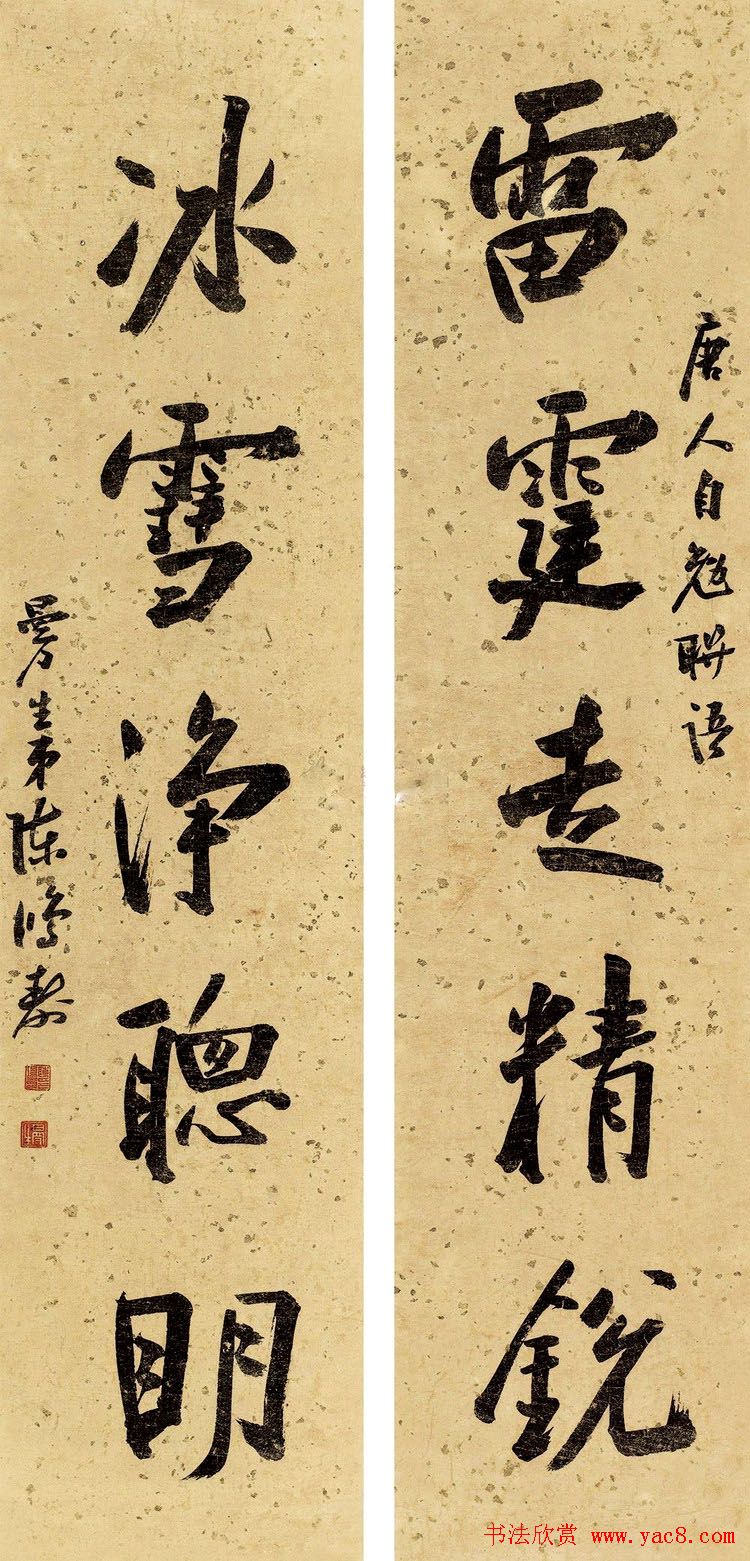 唐人自題聯語
雷霆走精銳
冰雪浄聰明
曼生弟陳鴻壽
书法欣赏 www.yac8.com